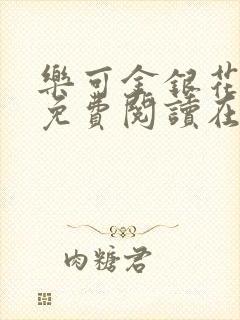 樂可金銀花
免費閱讀在
肉糖君